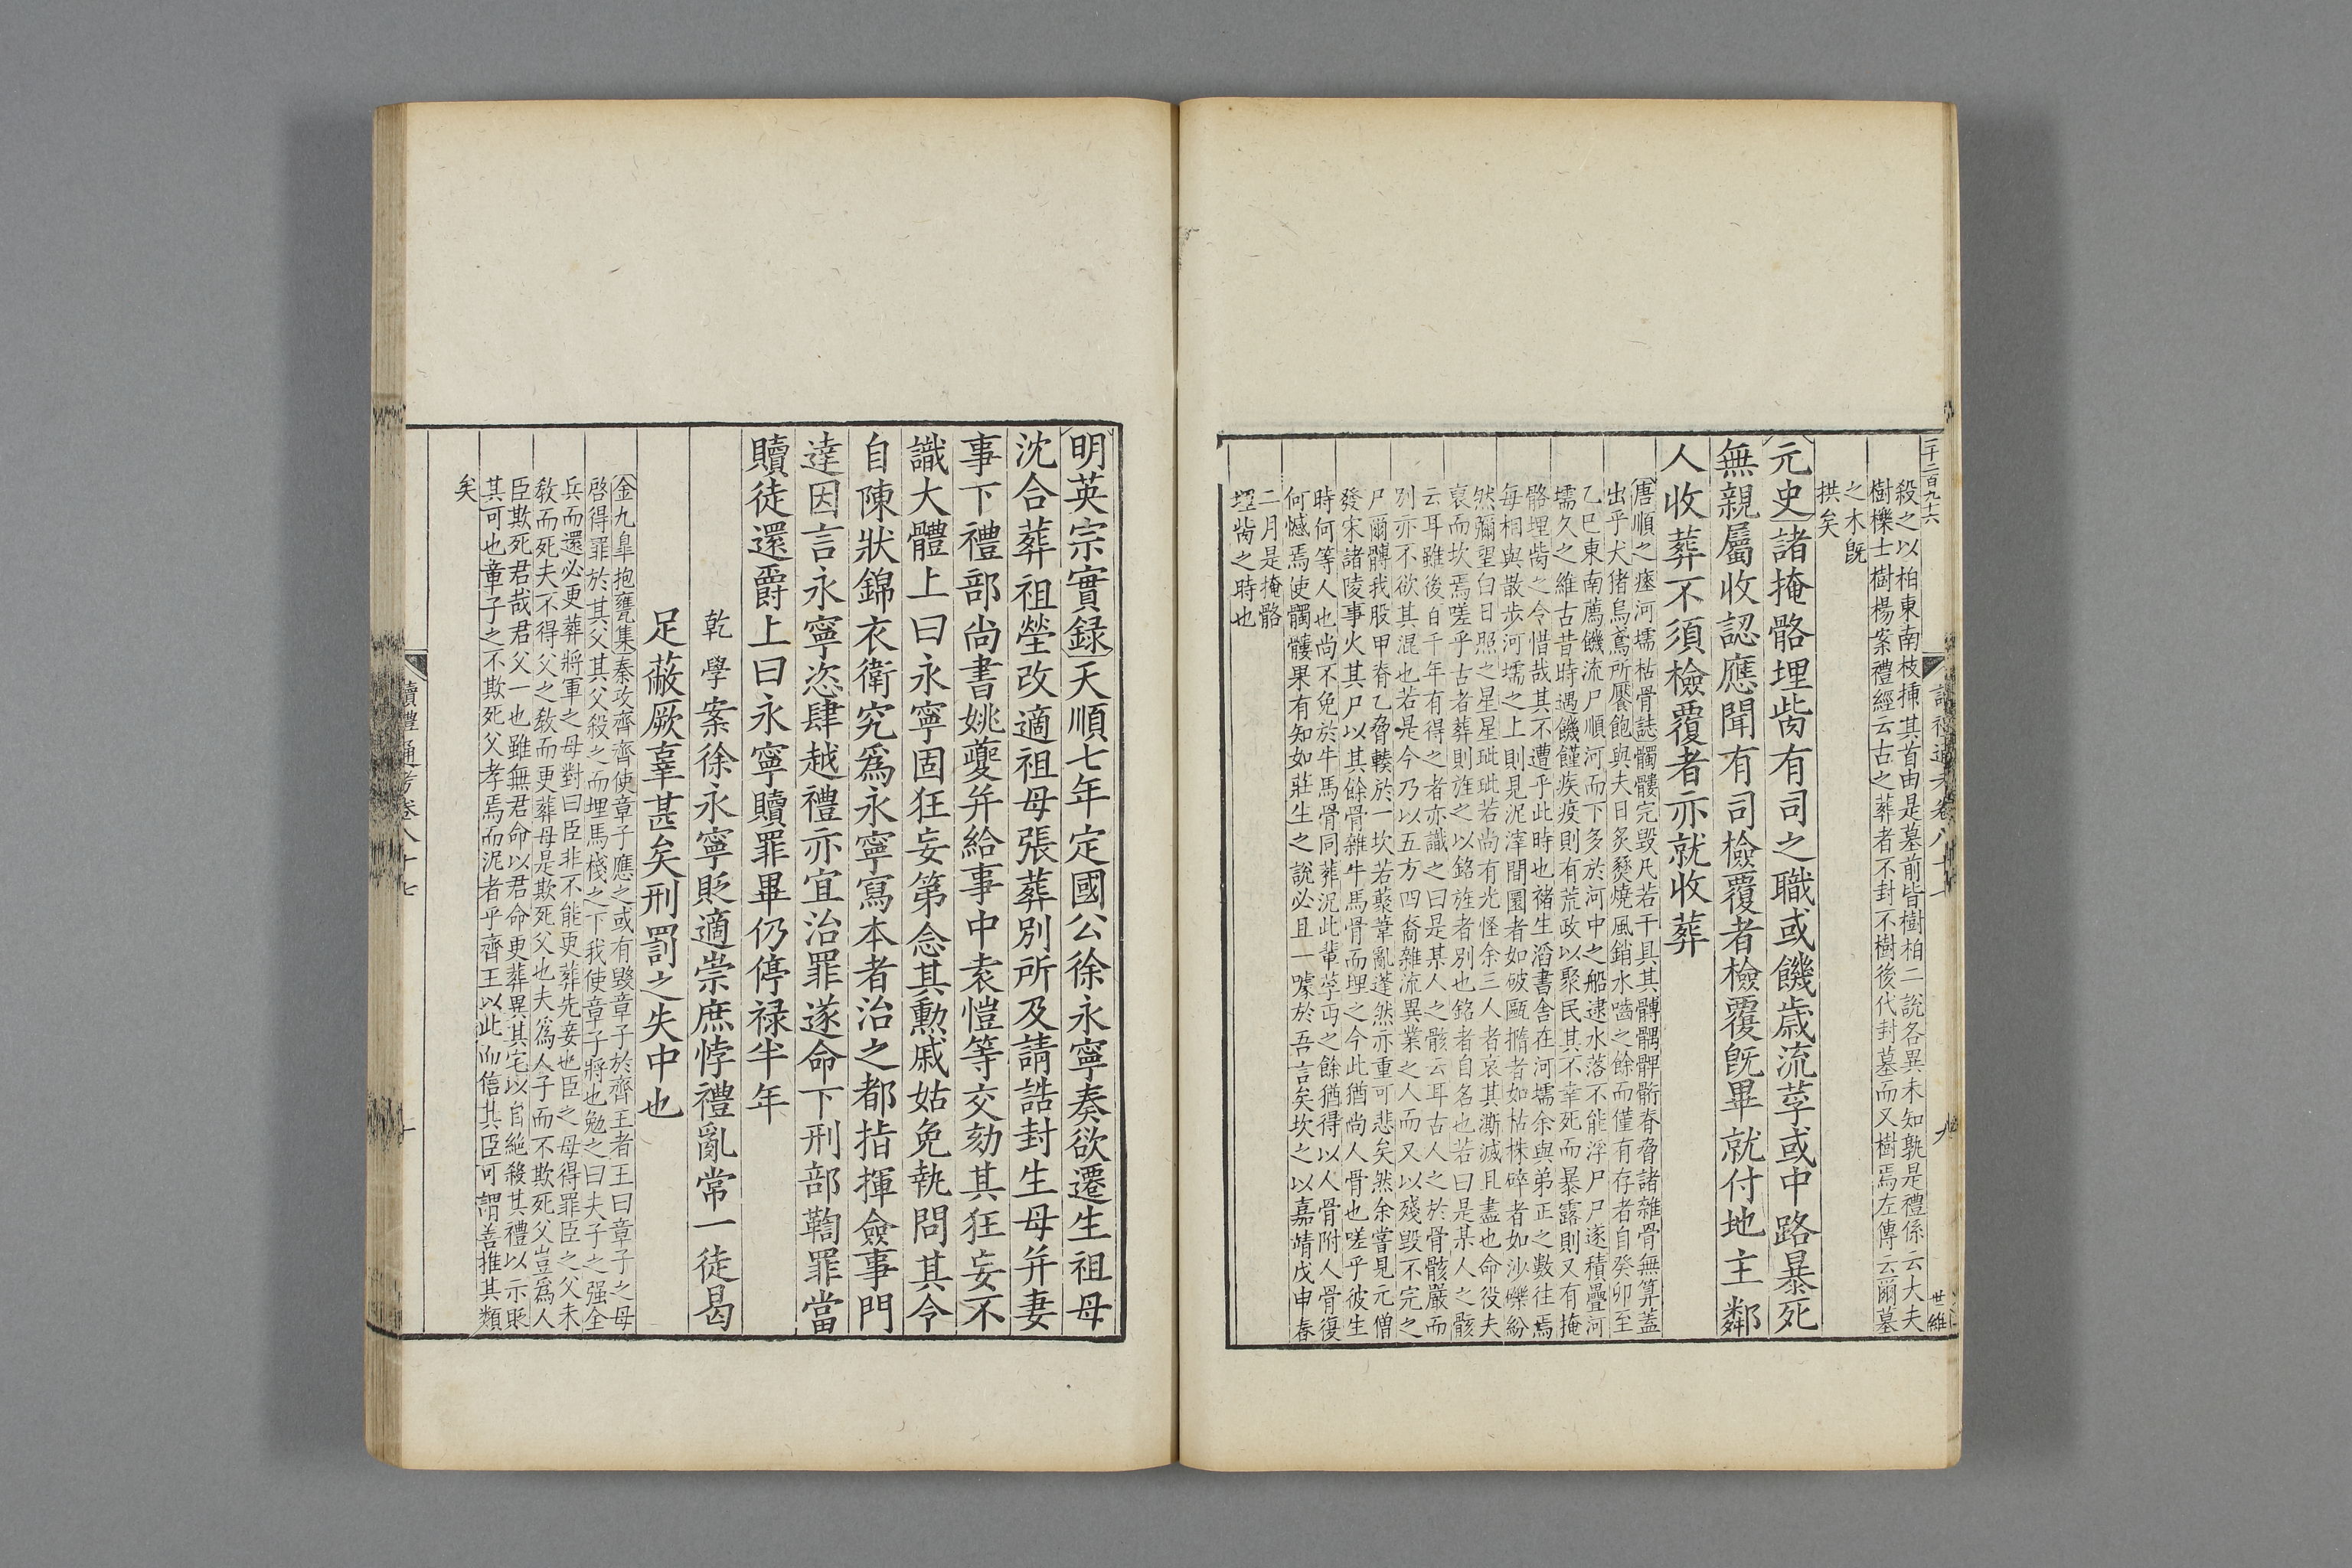 殺之以柏東南枝捶其首由是墓前皆樹柏二說各異未知孰是禮係云大夫
樹櫟士樹楊案禮經云古之葬者不封不樹後代封墓而又樹焉左傳云爾墓
之木旣
拱矣
元史諸掩骼埋胔有司之職或饑歲流莩或中路暴死
無親屬收認應聞有司檢覆者檢覆旣畢就付地主鄰
人收葬不須檢覆者亦就收葬
唐順之瘞河壖枯骨誌髑髏完毀凡若干具其髆髃髀䯒脊脅諸雜骨無算蓋
出乎犬猪烏鳶所饜飽與夫日炙燹燒風銷水嚙之餘而僅有存者自癸卯至
乙巳東南薦饑流尸順河而下多於河中之船逮水落不能浮尸尸遂積疊河
壖久之維古昔時遇饑饉疾疫則有荒政以聚民其不幸死而暴露則又有掩
骼埋胔之令惜哉其不遭乎此時也禇生滔書舍在河壖余與弟正之數往焉
每相與散步河壖之上則見泥滓間圜者如破甌㩜者如枯株碎者如沙礫紛
然彌望白日照之星星玼玼若尚有光怪余三人者哀其漸滅且盡也命役夫
裒而坎焉嗟乎古者葬則旌之以銘旌者別也銘者自名也若曰是某人之骸
云耳雖後自千年有得之者亦識之曰是某人之骸云耳古人之於骨骸嚴而
別亦不欲其混也若是今乃以五方四裔雜流異業之人而又以殘毀不完之
尸爾髆我股甲脊乙脅轃於一坎若藂葦亂蓬然亦重可悲矣然余嘗見元僧
發宋諸陵事火其尸以其餘骨雜牛馬骨而埋之今此猶尚人骨也嗟乎彼生
時何等人也尚不免於牛馬骨同葬況此輩莩丐之餘猶得以人骨附人骨復
何憾焉使髑髏果有知如莊生之說必且一噱於吾言矣坎之以嘉靖戊申春
二月是掩骼
埋胔之時也
明英宗實録天順七年定國公徐永寧奏欲遷生祖母
沈合葬祖塋改適祖母張葬別所及請誥封生母并妻
事下禮部尚書姚夔并給事中袁愷等交劾其狂妄不
識大體上曰永寧固狂妄第念其勳戚姑免執問其令
自陳狀錦衣衛究爲永寧寫本者治之都指揮僉事門
達因言永寧恣肆越禮亦宜治罪遂命下刑部鞫罪當
贖徒還爵上曰永寧贖罪畢仍停禄半年
乾學案徐永寧貶適崇庶悖禮亂常一徒曷
足蔽厥辜甚矣刑罰之失中也
金九臯抱甕集秦攻齊齊使章子應之或有毀章子於齊王者王曰章子之母
啓得罪於其父其父殺之而埋馬棧之下我使章子將也勉之曰夫子之强全
兵而還必更葬將軍之母對曰臣非不能更葬先妾也臣之母得罪臣之父未
敎而死夫不得父之敎而更葬母是欺死父也夫爲人子而不欺死父豈爲人
臣欺死君哉君父一也雖無君命以君命更葬異其宅以自絶殺其禮以示貶
其可也章子之不欺死父孝焉而泥者乎齊王以此而信其臣可謂善推其類
矣
讀禮通考卷八十七